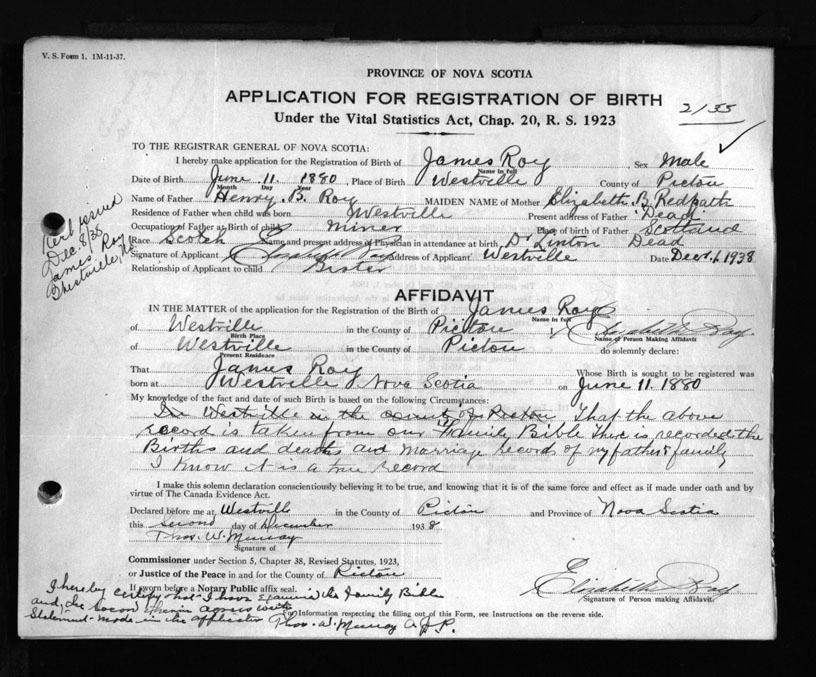 V. S. Form 1. 1M-11-37.
PROVINCE OF NOVA SCOTIA
APPLICATION FOR REGISTRATION OF BIRTH
2135
Under the Vital Statistics Act, Chap. 20, R. S. 1923
TO THE REGISTRAR GENERAL OF NOVA SCOTIA:
I hereby make application for the Registration of Birth of James Roy, Sex Male
Name in full
Date of Birth June 11 1880, Place of Birth Westville County of Pictou
Month Day Year
Name of Father Henry B. Roy MAIDEN NAME of Mother Elizabeth B. Redpath
Residence of Father when child was born Westville Present address of Father Dead
Occupation of Father at Birth of child Miner Place of birth of Father Scotland
Race Scotch Name and present address of Physician in attendance at birth Dr Linton Dead
Signature of Applicant Elizabeth Roy Address of Applicant Westville Date Dec 1938
Relationship of Applicant to child Sister
Cert issued
Dec. 8/38
James Roy
Westville, N.S.
AFFIDAVIT
IN THE MATTER of the application for the Registration of the Birth of James Roy
Name in full
of Westville in the County of Pictou I, Elizabeth Roy
Birth Place Name of Person Making Affidavit
of Westville in the County of Pictou do solemnly declare:
Present Residence
That James Roy Whose Birth is sought to be registered was
born at Westville Nova Scotia on June 11. 1880
My knowledge of the fact and date of such Birth is based on the following Circumstances:
In Westville in the County of Pictou That the above
record is taken from our Family Bible There is recorded the
Births and deaths and marriage records of my father's family
I know it is a true record
I make this solemn declaration conscientiously believing it to be true, and knowing that it is of the same force and effect as if made under oath and by
virtue of The Canada Evidence Act.
Declared before me at Westville in the County of Pictou and Province of Nova Scotia
this second day of December 1938
Thos. W. Murray
Signature of
Commissioner under Section 5, Chapter 38, Revised Statutes, 1923,
or Justice of the Peace in and for the County of Pictou
If sworn before a Notary Public affix seal.
Elizabeth Roy
Signature of Person making Affidavit.
I hereby certify that I have examined the Family Bible
and the record therein agrees with
Statement made in the application Thos. W. Murray A J P.
For Information respecting the filling out of this Form, see Instructions on the reverse side.